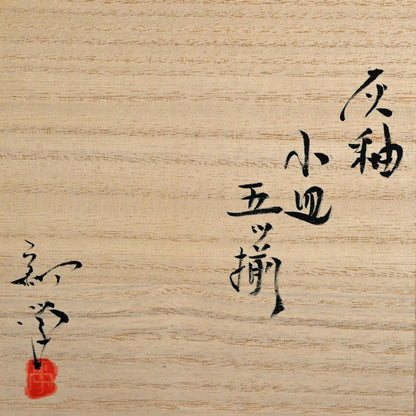 灰釉
小皿
五ッ揃